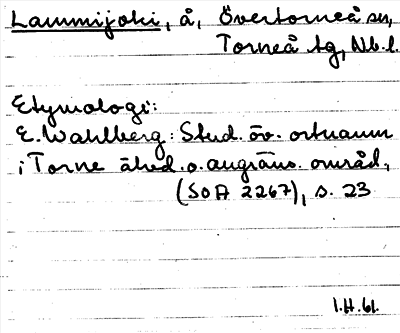 Lammijoki, å, Övertorneå sn,
Torneå tg, Nb. l.
Etymologi:
E. Wahlberg: Stud. öv. ortnamn
i Torne älvd. o. angräns. områd.,
(SOA 2267), s. 23
I.H. 61.